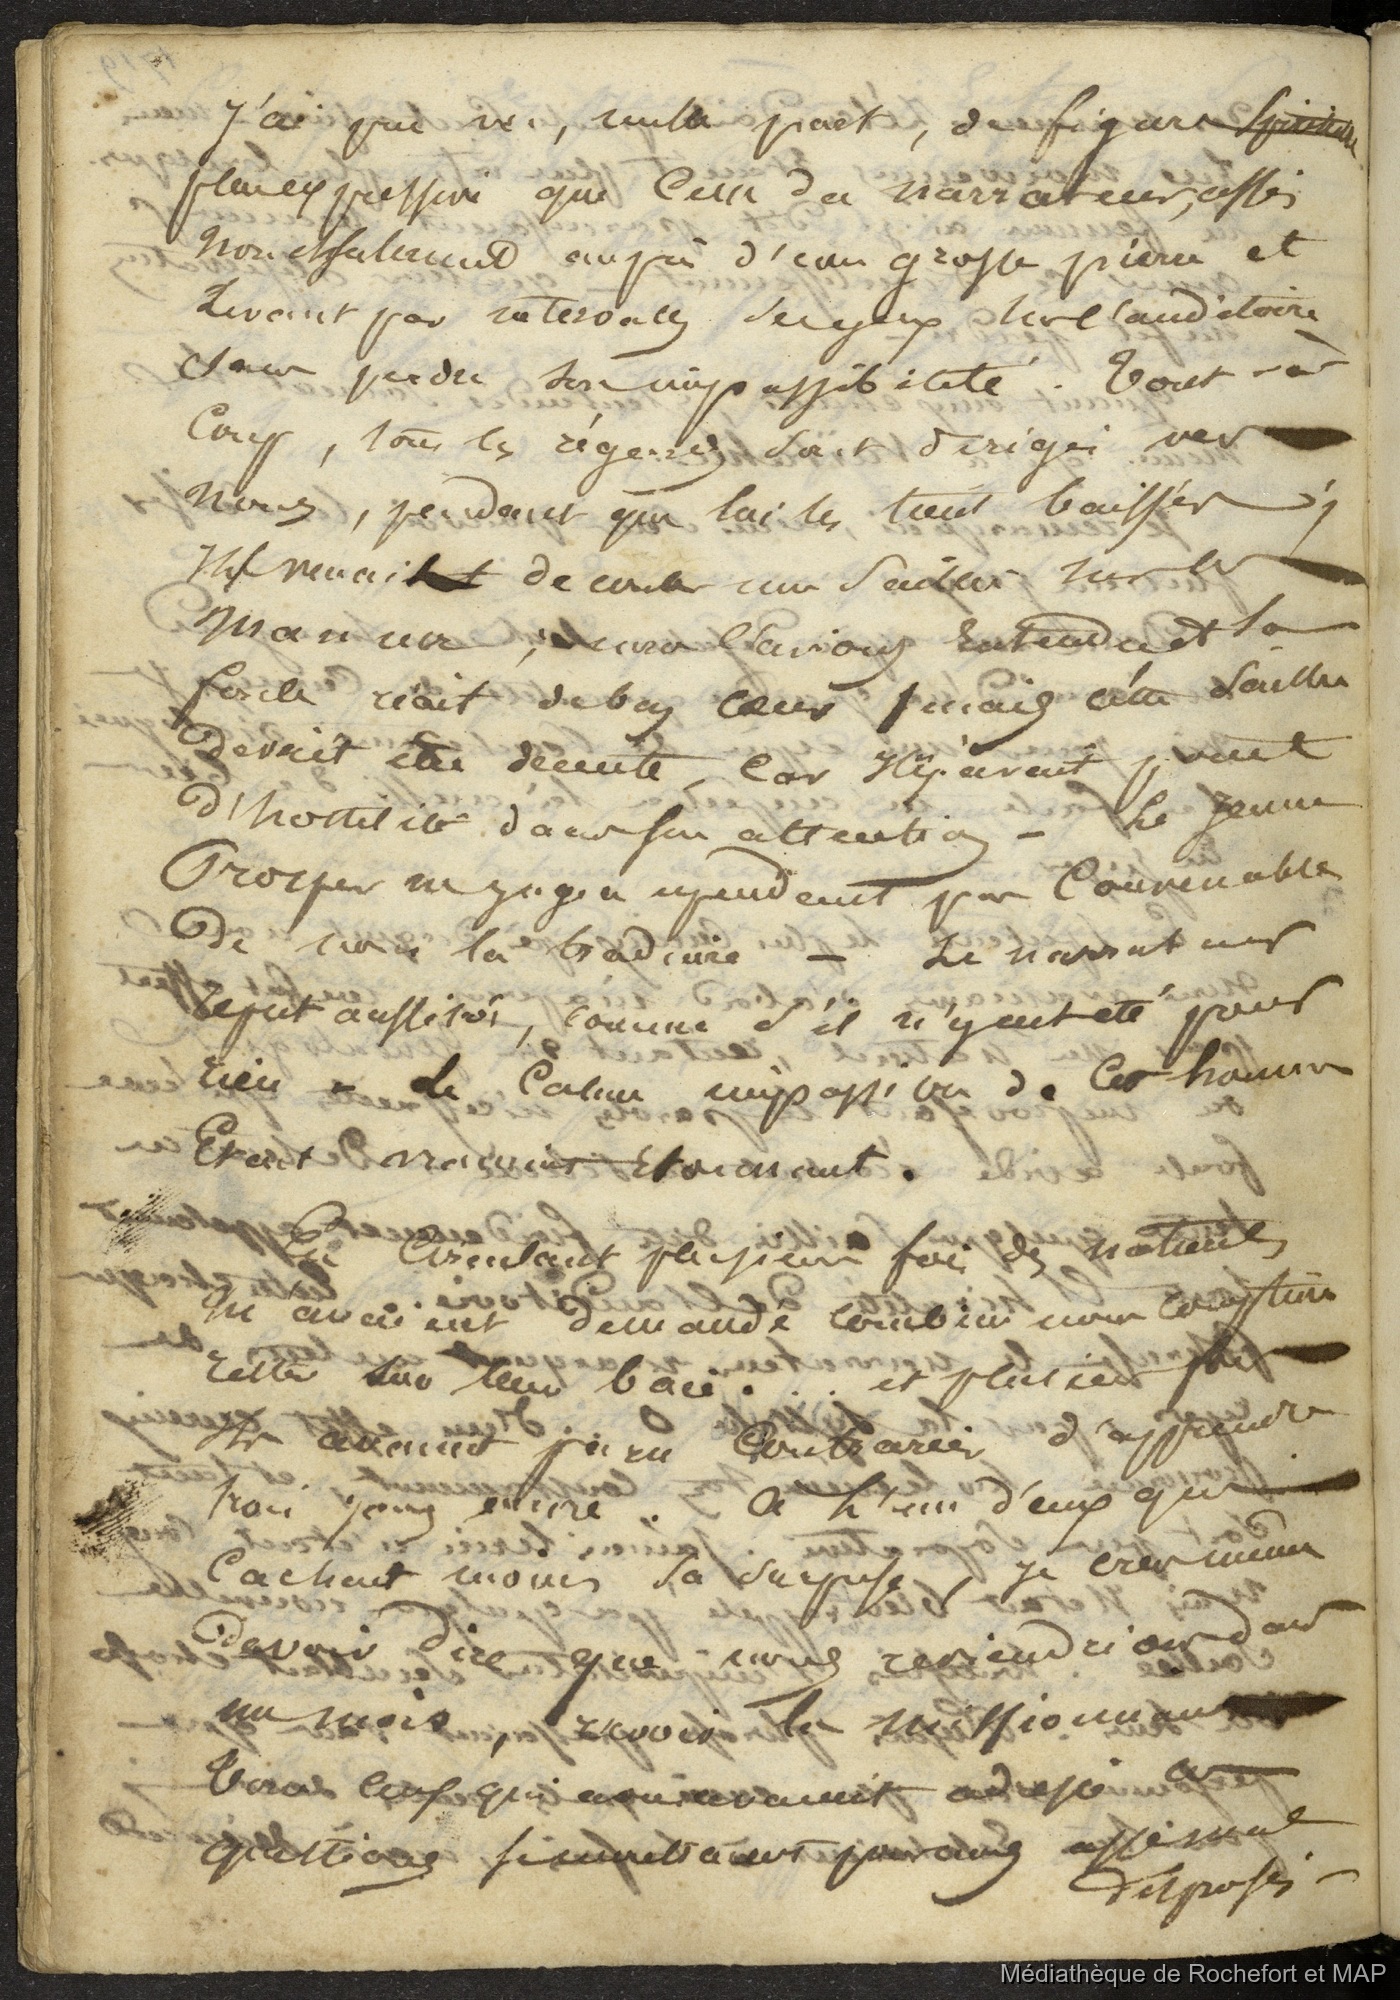 J'ai peu vu, nulle part, de figure
plus expressive que celle du narrateur, assis
nonchalamment auprès d'une grosse pierre et
levant par intervalles ses yeux sur l'auditoire
sans perdre son impassibilité. Tout-à-
coup, tous les régards sont dirigés vers
nous, pendant que lui les tient baissés;
Il venait de couler une saillie sur les
; nous l'avions entendu et la
foule riait de bon coeur, mais cette saillie
devait être décente, car ils avaient point
d'hostilité dans leur attention – Le jeune
Prosper ne jugea cependant pas convenable
de nous la traduire – Le narrateur
reprit aussitôt, comme s'il n'y eut été pour
rien – le calme impassible de cet homme
Etait vraiment étonnant.
En circulant plusieurs fois des naturels
m'avaient demandé combien nous comptions
rester sur leur baie... et plusieurs fois
ils avaient paru contrariés d'apprendre
trois jours encore. A l'un d'eux qui
cachait moins sa surprise, je crus même
devoir dire que nous reviendrions dans
un mois, revoir les missionnaires
Tous ceux qui nous avaient adressé ces
questions semblaient pour nous assez mal
disposés –
Médiathèque de Rochefort et MAP